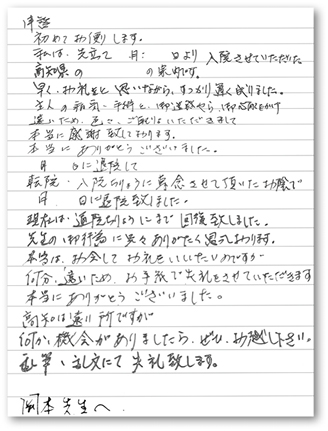 拝啓
初めてお便りします。
私は、先立て 月 日より 入院させていただいた
高知県の の家内です。
早く、お礼をと思いながら、すっかり遅く成りました。
主人の病気・手術と、御迷惑やら、御心配をかけ
遠いため、色々、ご配慮いただきまして
本当に感謝致しております。
本当にありがとうございました。
月 日に退院して
転院・入院ちりょうに専念させて頂いたお陰で
月 日に退院致しました。
現在は、通院ちりょうにまで 回復致しました。
先生の御行為に 深々 ありがたく思っております。
本当は、お会して お礼をいいたいのですが
何分、遠いため、お手紙で失礼をさせていただきます
本当にありがとうございました。
高知は遠い所ですが
何か機会がありましたら、ぜひ、お越し下さい。
乱筆・乱文にて 失礼致します。
岡本先生へ